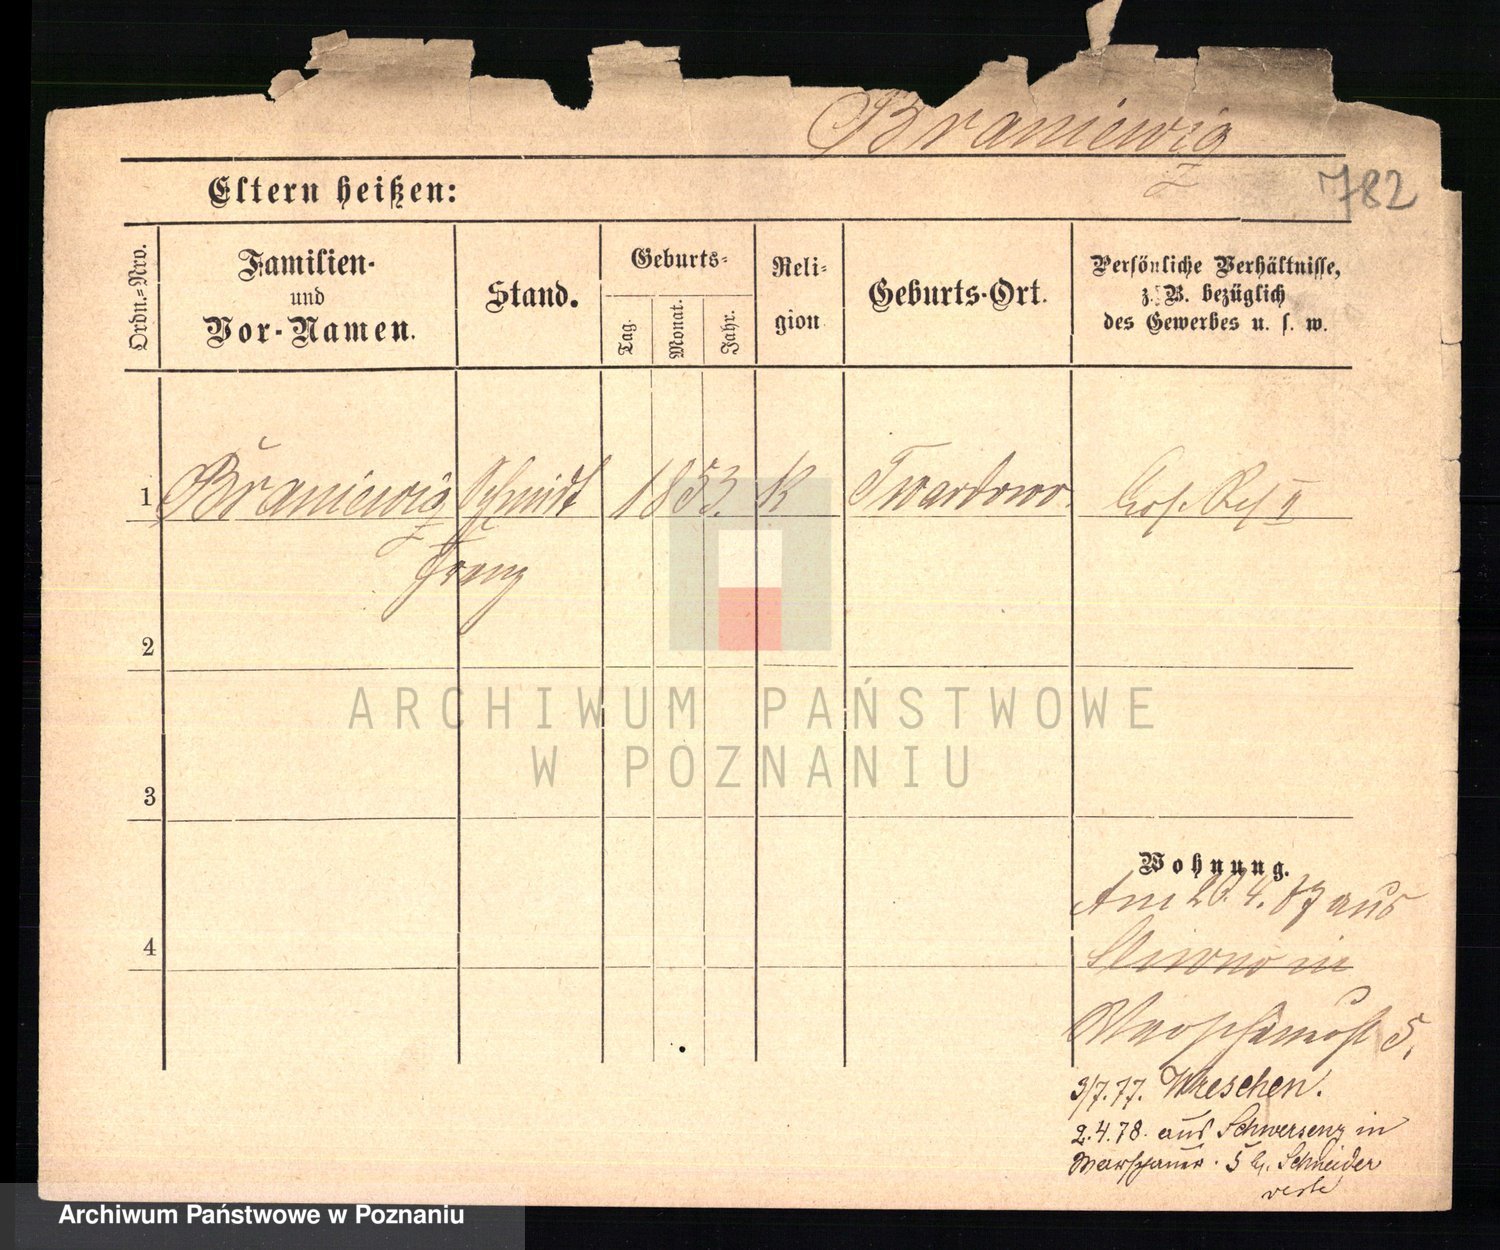 Braniewig
z
782
Eltern heißen:
Ordn.=Nro.
Familien-
und
Vor-Namen.
Stand.
Geburts=
Tag.
Monat.
Jahr.
Reli=
gion
Geburts-Ort.
Persönliche Verhältnisse,
z. B. bezüglich
des Gewerbes u. s. w.
1 Braniewig Schmidt 1853. K Twardowo. Ers. Res II
z
Franz
2
ARCHIWUM PAŃSTWOWE
W POZNANIU
3
Wohnung.
Am 4. 87 aus
4
in
5.
3/7.77. Wreschen.
2.4.78. aus Schwersenz in
5 b. Schneider
Archiwum Państwowe w Poznaniu